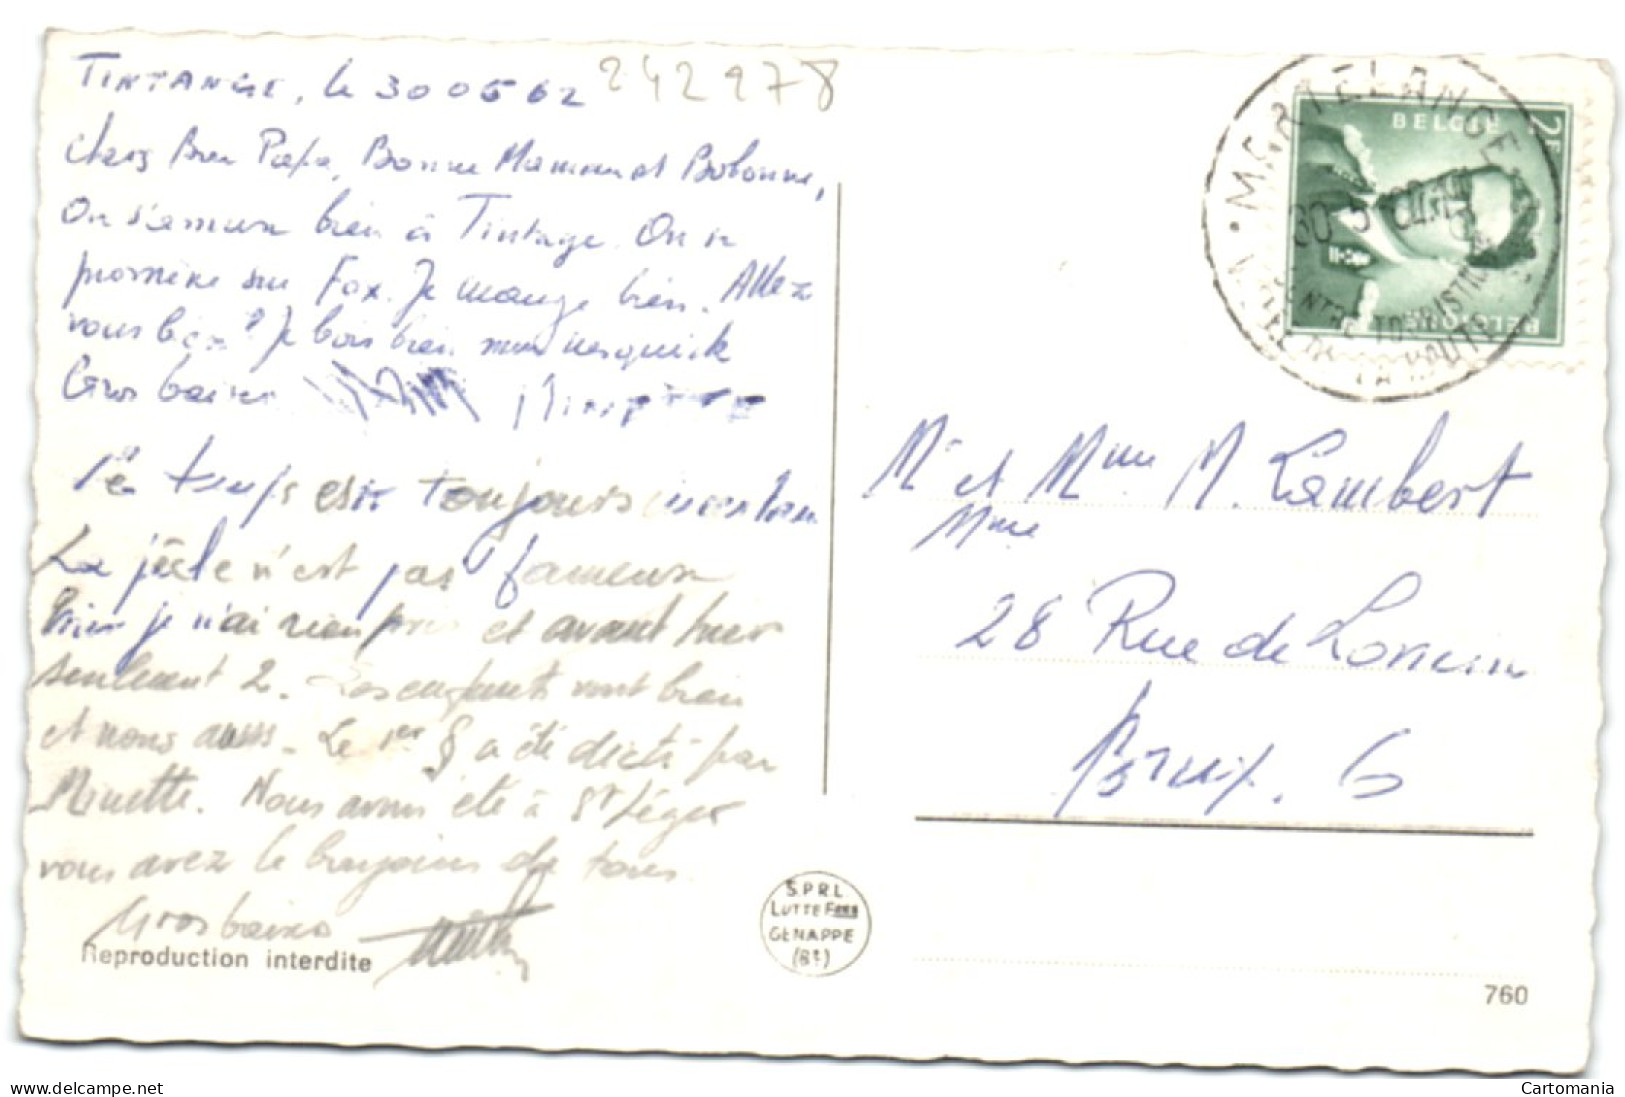 TINTANGE, le 300562 242978
Chers Bon Papa, Bonne Maman et Bobonne,
On s'amuse bien à Tintage. On se
promène sur Fox. Je mange bien. Allez
vous bien? Je bois bien mon nesquick
Gros baisers
Le temps est toujours incertain
La pêche n'est pas fameuse
Hier je n'ai rien pris et avant hier
seulement 2. Les enfants vont bien
et nous aussi. Le 1er § a été dicté par
Minette. Nous avons été à St Léger
vous avez le bonjour de tous.
Gros baisers
Reproduction interdite
S.P.R.L
LUTTE FRES
GENAPPE
MARTELANGE
30 5
CENTRE TOURISTIQUE
BELGIE
2F
BELGIQUE
Mr et Mme M. Lambert
Mme
28 Rue de
Brux. 6
760
delcampe.net
Cartomania